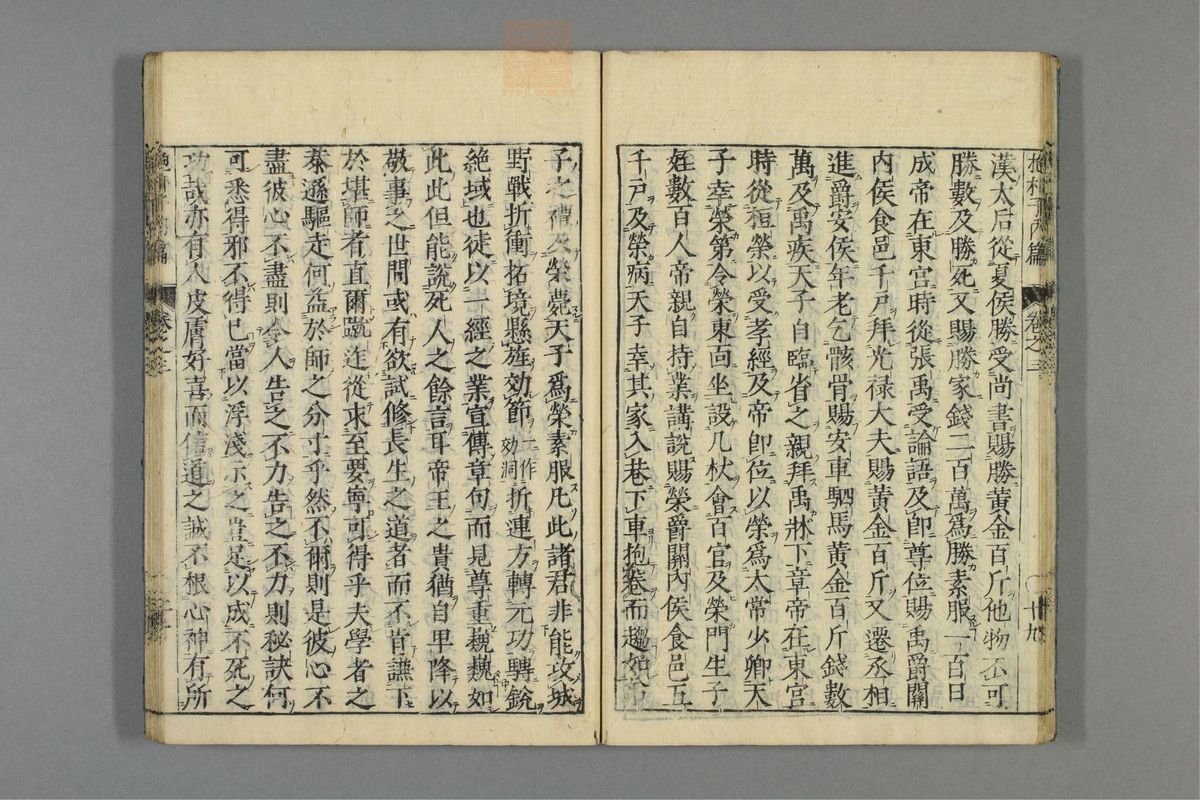 抱朴子內篇 卷之三 廿九
漢太后從夏侯勝受尚書賜勝黃金百斤他物不可
勝數及勝死又賜勝家錢二百萬爲勝素服一百日
成帝在東宮時從張禹受論語及卽尊位賜禹爵關
內侯食邑千戶拜光禄大夫賜黃金百斤又遷丞相
進爵安侯年老乞骸骨賜安車駟馬黃金百斤錢數
萬及禹疾天子自臨省之親拜禹牀下章帝在東宮
時從桓榮以受孝經及帝卽位以榮爲太常少卿天
子幸榮第令榮東面坐設几杖會百官及榮門生子
姪數百人帝親自持業講說賜榮爵關內侯食邑五
千戶及榮病天子幸其家入巷下車抱卷而趨如弟
子之禮及榮薨天子爲榮素服凡此諸君非能攻城
野戰折衝拓境懸旌効節一作効洞折連方轉元功騁銳
絶域也徒以一經之業宣傳章句而見尊重巍巍如
此此但能說死人之餘言耳帝王之貴猶自卑降以
敬事之世間或有欲試修長生之道者而不肯謙下
於堪師者直爾蹴迮從求至要寧可得乎夫學者之
恭遜驅走何益於師之分寸乎然不爾則是彼心不
盡彼心不盡則令人告之不力告之不力則秘訣何
可悉得邪不得已當以浮淺示之豈足以成不死之
功哉亦有人皮膚好喜而信道之誠不根心神有所